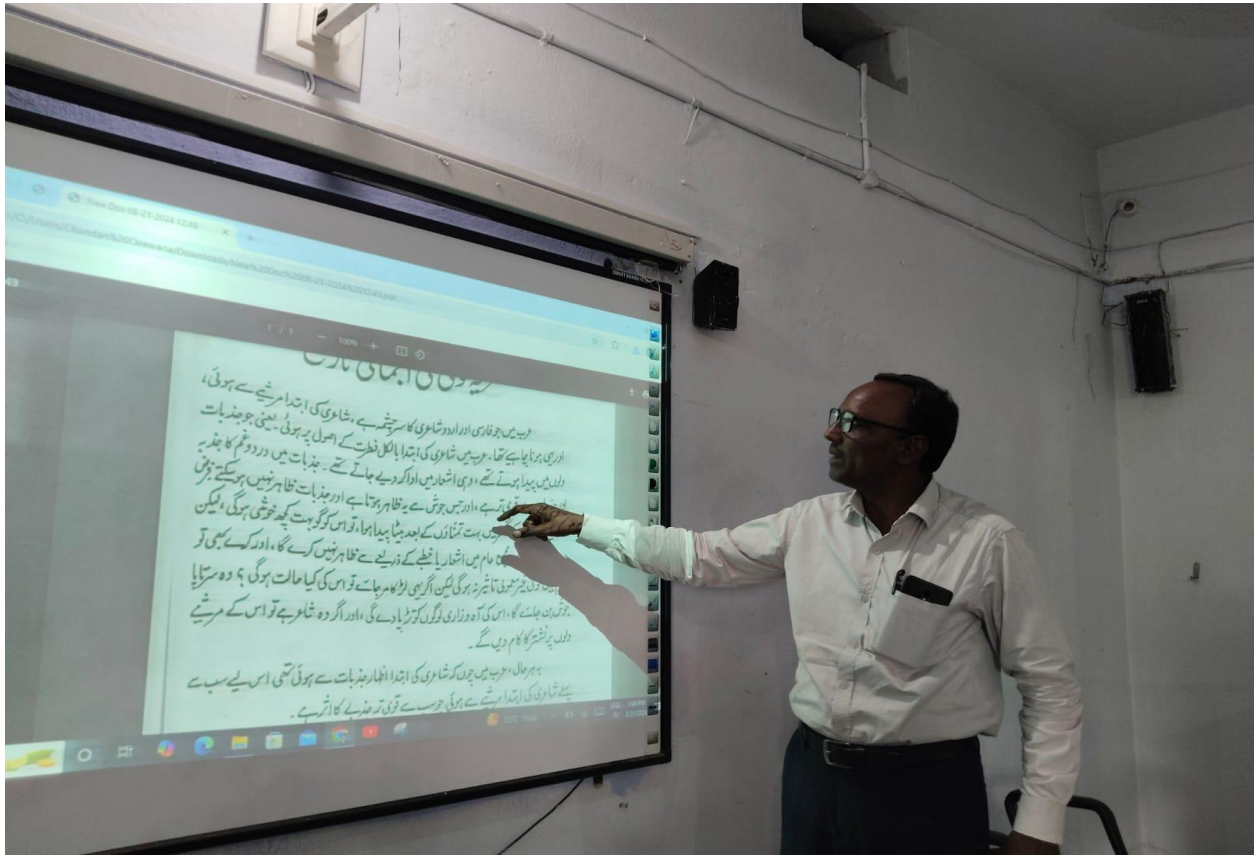 New Doc 08-21-2024 12.49
C:/Users/Chandan%20Deewana/Downloads/New%20Doc%2008-21-2024%2012.49.pdf
49
1 / 1
100%
کی اجمالی تاریخ
عرب میں جو فارسی اور اردو شاعری کا سرچشمہ ہے، شاعری کی ابتدا مرثیے سے ہوئی،
اور یہی ہونا چاہیے تھا۔ عرب میں شاعری کی ابتدا بالکل فطرت کے اصول پر ہوئی۔ یعنی جو جذبات
دلوں میں پیدا ہوتے تھے، وہی اشعار میں ادا کر دیے جاتے تھے۔ جذبات میں درد و غم کا جذبہ
قوی تر ہے، اور جس جوش سے یہ ظاہر ہوتا ہے اور جذبات ظاہر نہیں ہو سکتے
بہت تمناؤں کے بعد بیٹا پیدا ہوا، تو اس کو گو بہت کچھ خوشی ہوگی، لیکن
عام میں اشعار یا خطبے کے ذریعے سے ظاہر نہیں کرے گا، اور کرے بھی تو
تاثیر نہ ہوگی لیکن اگر یہی لڑکا مر جائے تو اس کی کیا حالت ہوگی؟ وہ سرتاپا
جوش بن جائے گا، اس کی آہ و زاری لوگوں کو تڑپا دے گی، اور اگر وہ شاعر ہے تو اس کے مرثیے
دلوں پر نشتر کا کام دیں گے۔
بہرحال، عرب میں چوں کہ شاعری کی ابتدا اظہار جذبات سے ہوئی تھی اس لیے سب سے
پہلے شاعری کی ابتدا مرثیے سے ہوئی جو سب سے قوی تر جذبے کا اثر ہے۔